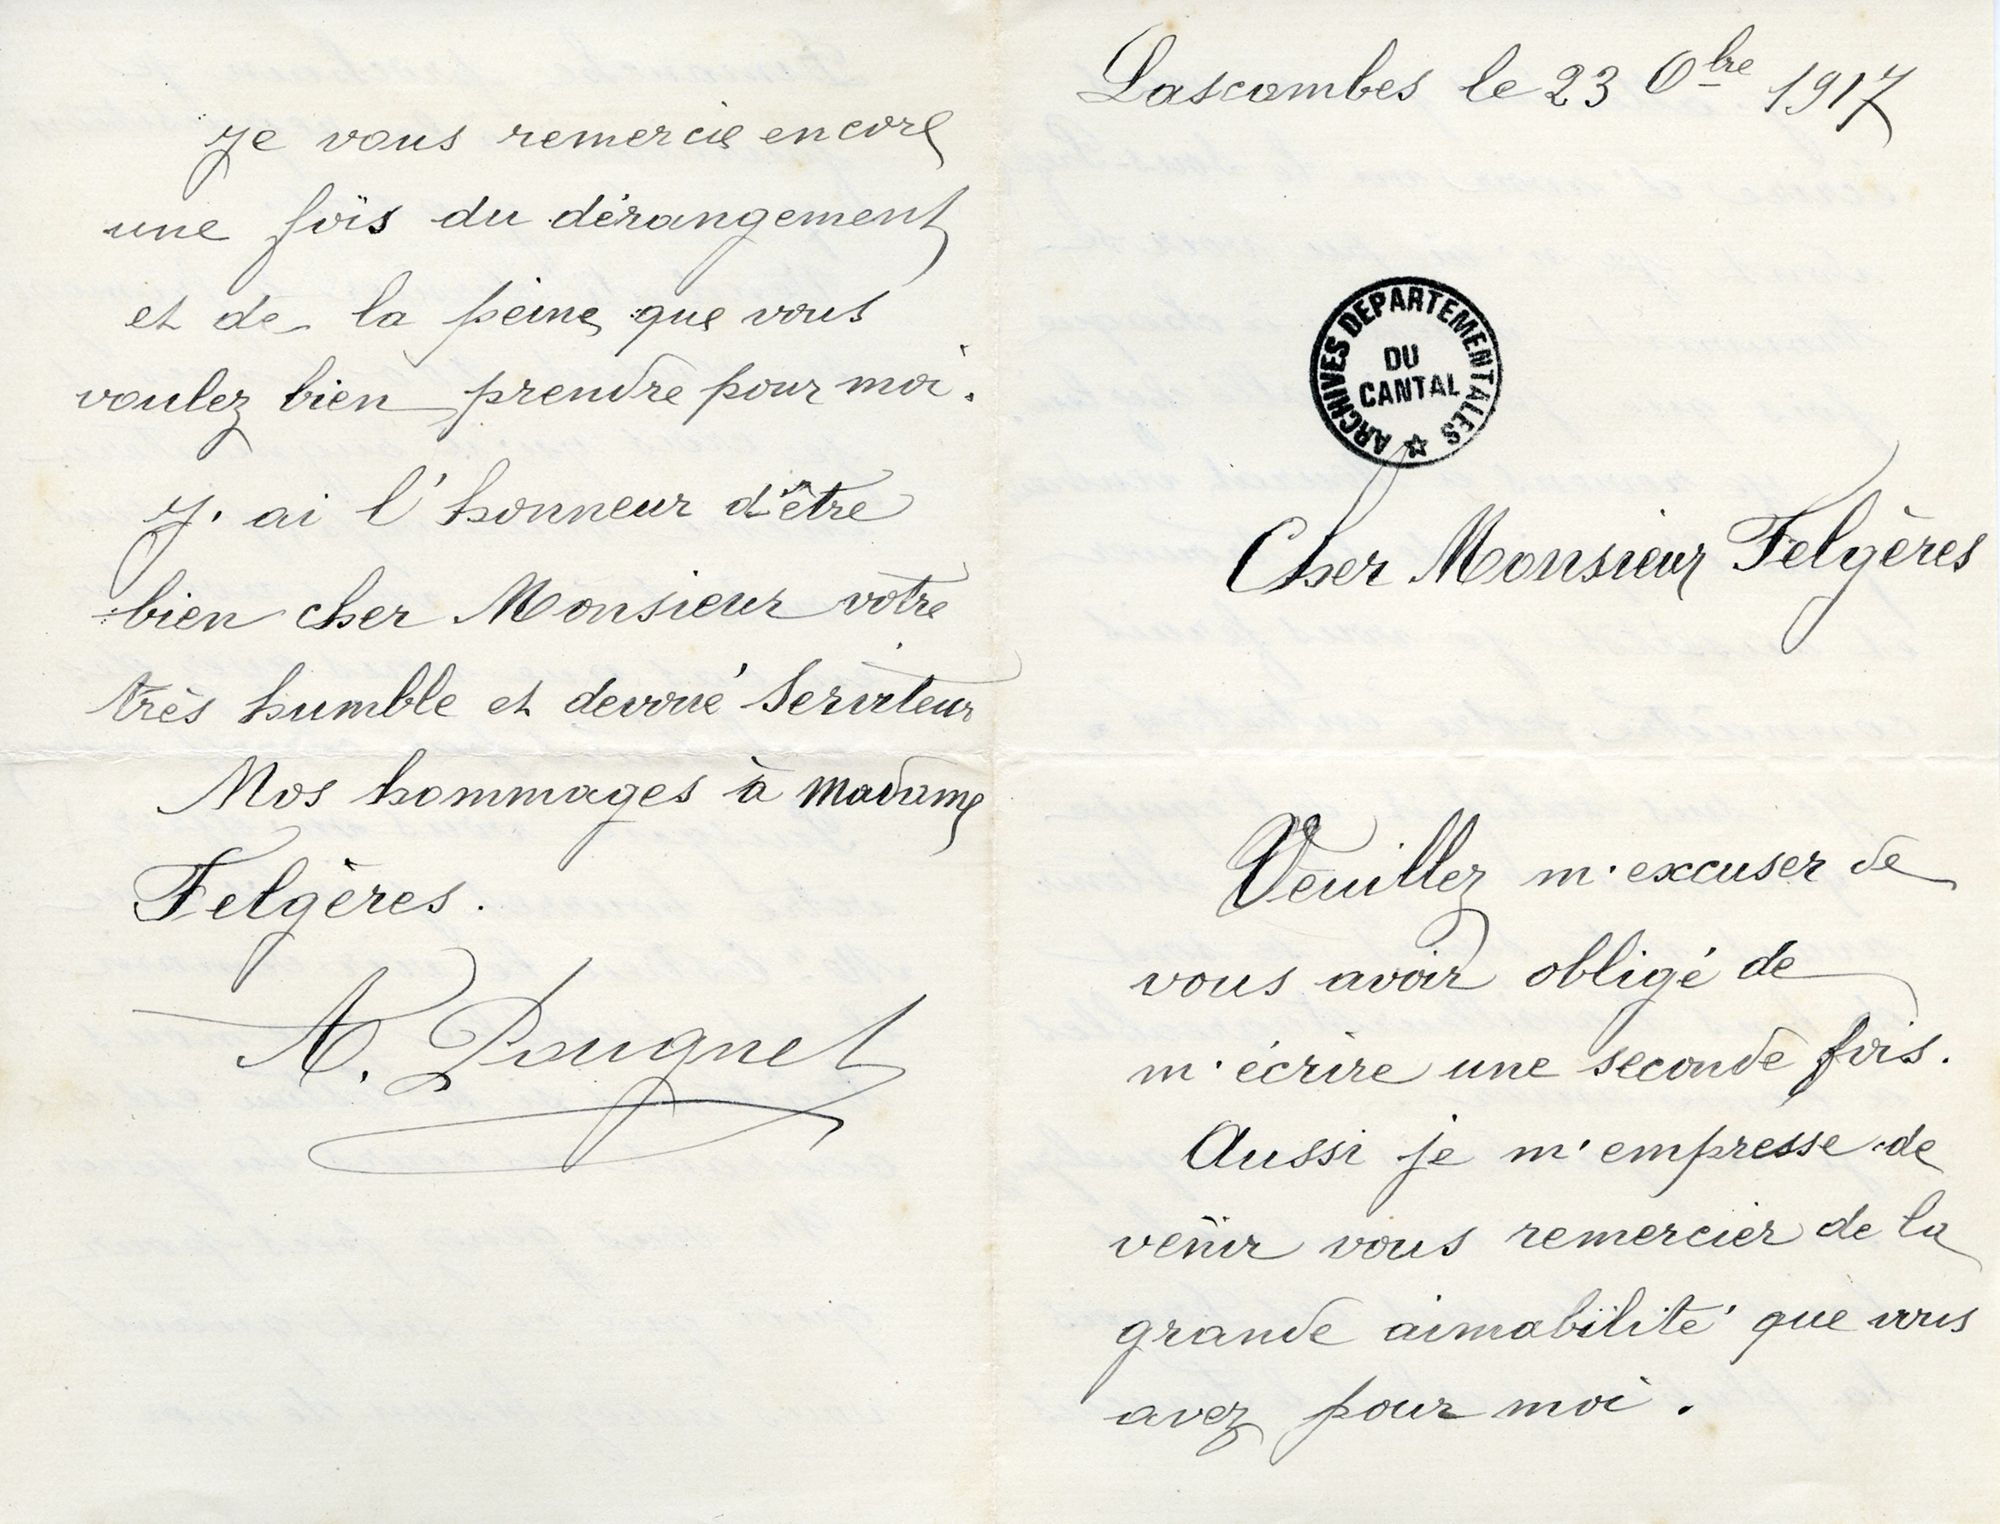 Lascombes le 23 Obre 1917
ARCHIVES DEPARTEMENTALES
DU
CANTAL
Cher Monsieur Felgères
Veuillez m'excuser de
vous avoir obligé de
m'écrire une seconde fois.
Aussi je m'empresse de
venir vous remercier de la
grande aimabilité que vous
avez pour moi.
Je vous remercie encore
une fois du dérangement
et de la peine que vous
voulez bien prendre pour moi.
J'ai l'honneur d'être
bien cher Monsieur votre
très humble et devoué Serviteur
Mos hommages à Madame
Felgères.
A. Pougnet